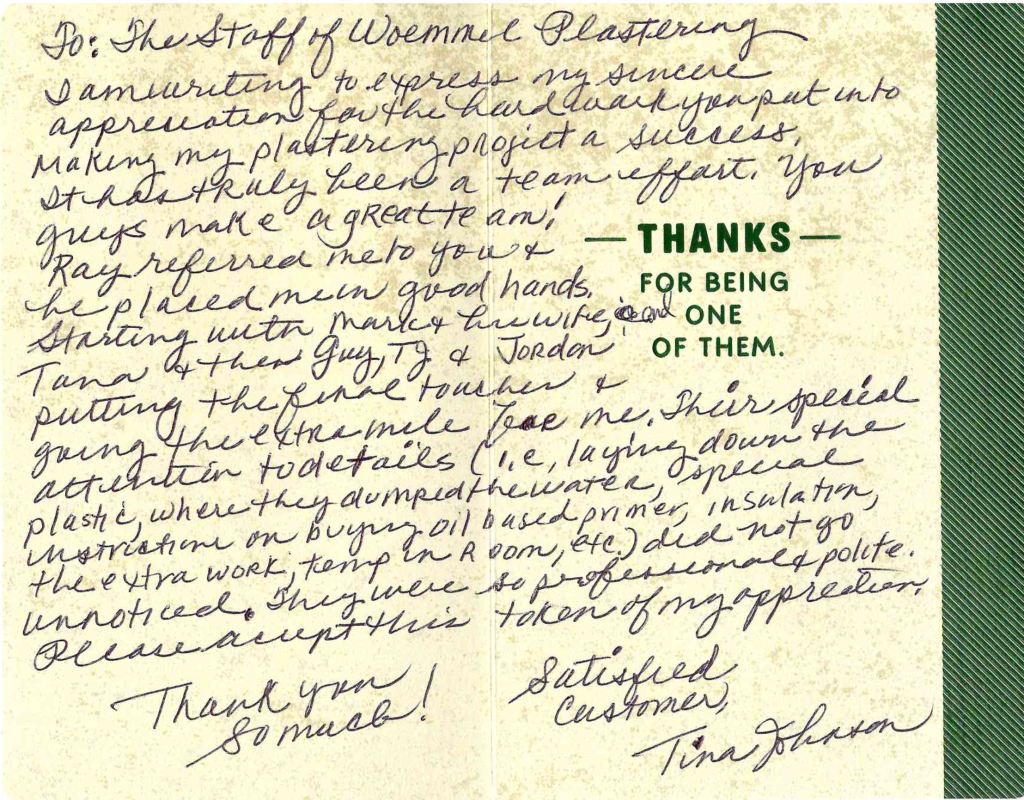 To: The Staff of Woemmel Plastering
I am writing to express my sincere
appreciation for the hard work you put into
Making my plastering project a success.
It has truly been a team effort. You
guys make a great team!
Ray referred me to you &
he placed me in good hands.
Starting with Mark & his wife, and
Tana & then Guy, TJ & Jordon
putting the final touches &
going the extra mile for me. Their special
attention to details (i.e, laying down the
plastic, where they dumped the water, special
instructions on buying oil based primer, insulation,
the extra work, temp in Room, etc.) did not go
unnoticed. They were so professional & polite.
Please accept this token of my appreciation.
Thank you
so much!
Satisfied
Customer,
Tina Johnson
— THANKS —
FOR BEING
ONE
OF THEM.